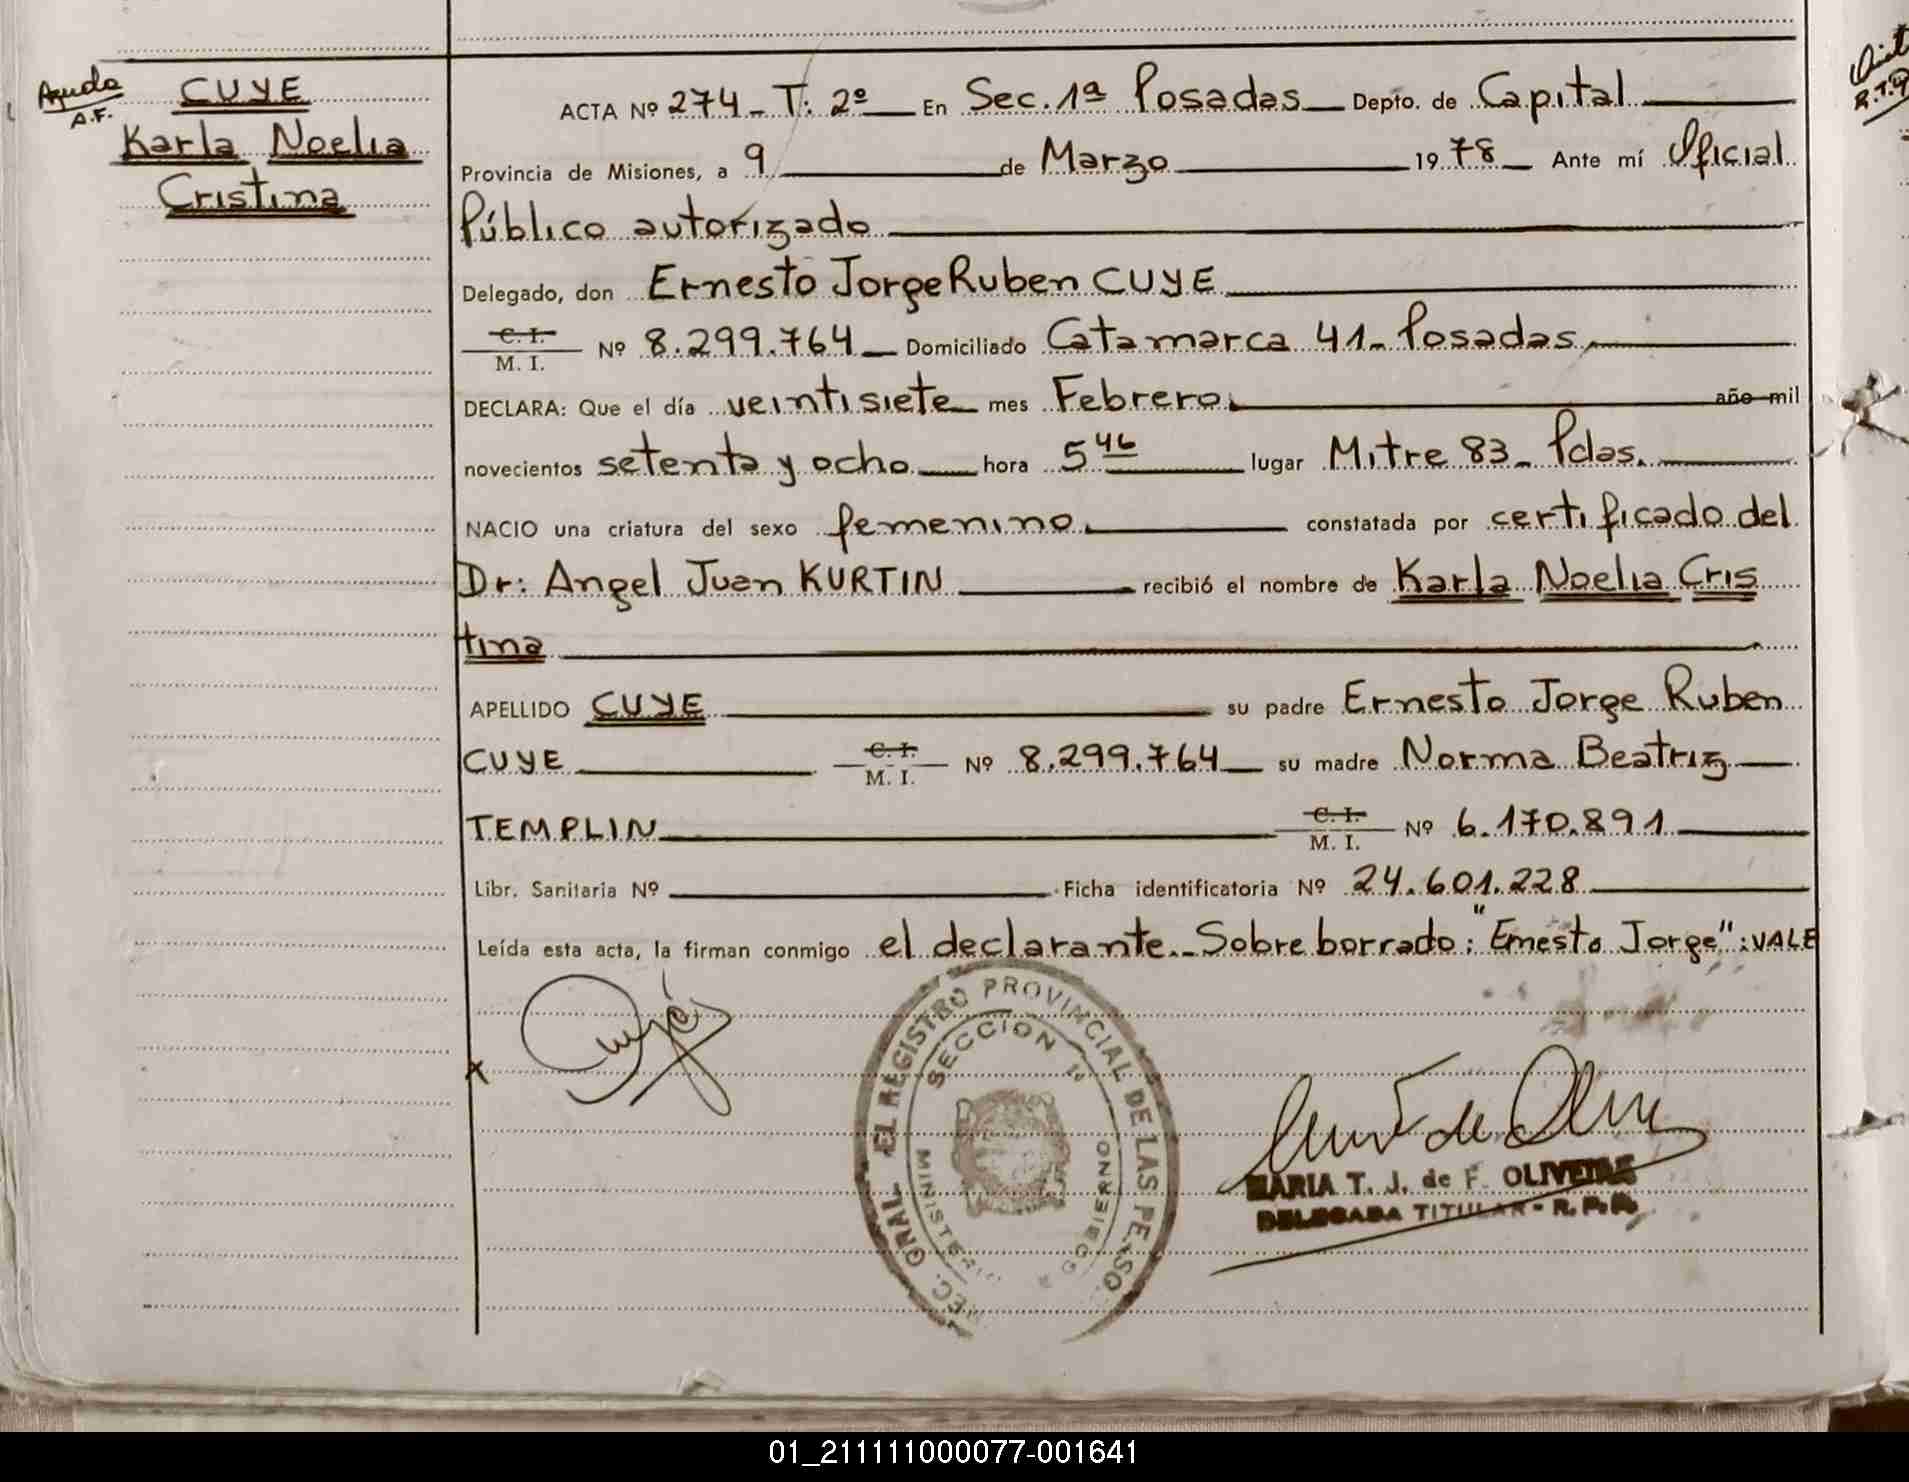 CUYE
Karla Noelia
Cristina
A.F.
ACTA Nº 274 - T: 2º En Sec. 1ª Posadas Depto. de Capital
Provincia de Misiones, a 9 de Marzo 1978 Ante mí Oficial
Público autorizado
Delegado, don Ernesto Jorge Ruben CUYE
C. I.
M. I. Nº 8.299.764 Domiciliado Catamarca 41 - Posadas
DECLARA: Que el día veintisiete mes Febrero año mil
novecientos setenta y ocho hora 5 46 lugar Mitre 83 - Pdas.
NACIO una criatura del sexo femenino constatada por certificado del
Dr: Angel Juan KURTIN recibió el nombre de Karla Noelia Cris
tina
APELLIDO CUYE su padre Ernesto Jorge Ruben
CUYE C. I. M. I. Nº 8.299.764 su madre Norma Beatriz
TEMPLIN C. I. M. I. Nº 6.170.891
Libr. Sanitaria Nº Ficha identificatoria Nº 24.601.228
Leída esta acta, la firman conmigo el declarante. - Sobre borrado: "Ernesto Jorge": VALE
GRAL. EL REGISTRO PROVINCIAL DE LAS PERSO.
SECCION 1ª
MINISTERIO GOBIERNO
MARIA T. J. de F. OLIVEIRA
DELEGADA TITULAR - R. P. P.
01_211111000077-001641